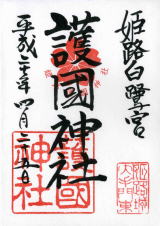 姫路白鷺宮
護國神社
平成二十年四月二十五日
護國
神社
姫路城
大手門東